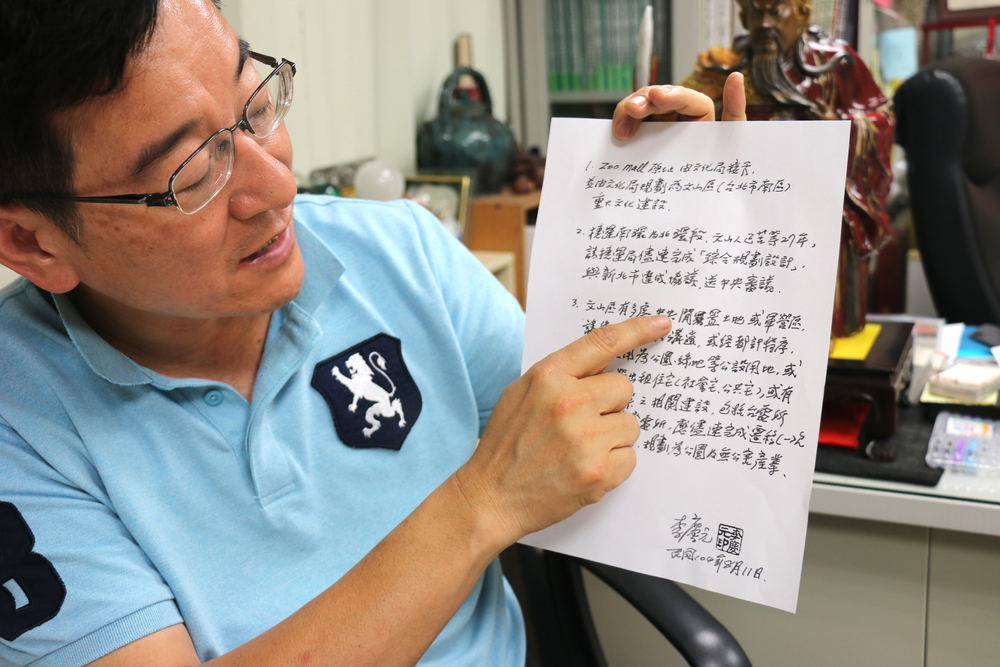 1. Zoo mall 原址 由文化局接管,
並由文化局規劃為文山區(台北市南區)
重大文化建設.
2. 捷運南環及北環段, 文山人已苦等27年,
請捷運局儘速完成「綜合規劃設計」,
與新北市達成協議, 送中央審議.
3. 文山區有多座 閒置土地或軍營區,
請 或經都計程序,
為公園、綠地等公設用地, 或
出租住宅(社會宅、公共宅), 或有
之相關建設, 包括台電所
電所, 應儘速完成遷移(一次
規劃為公園及無公害產業.
李慶元 李慶元印
民國104年8月11日.
B